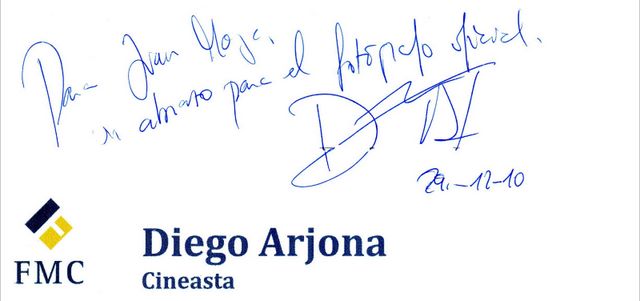 Para Juan Moya,
un abrazo para el fotógrafo oficial.
29-12-10
FMC
Diego Arjona
Cineasta